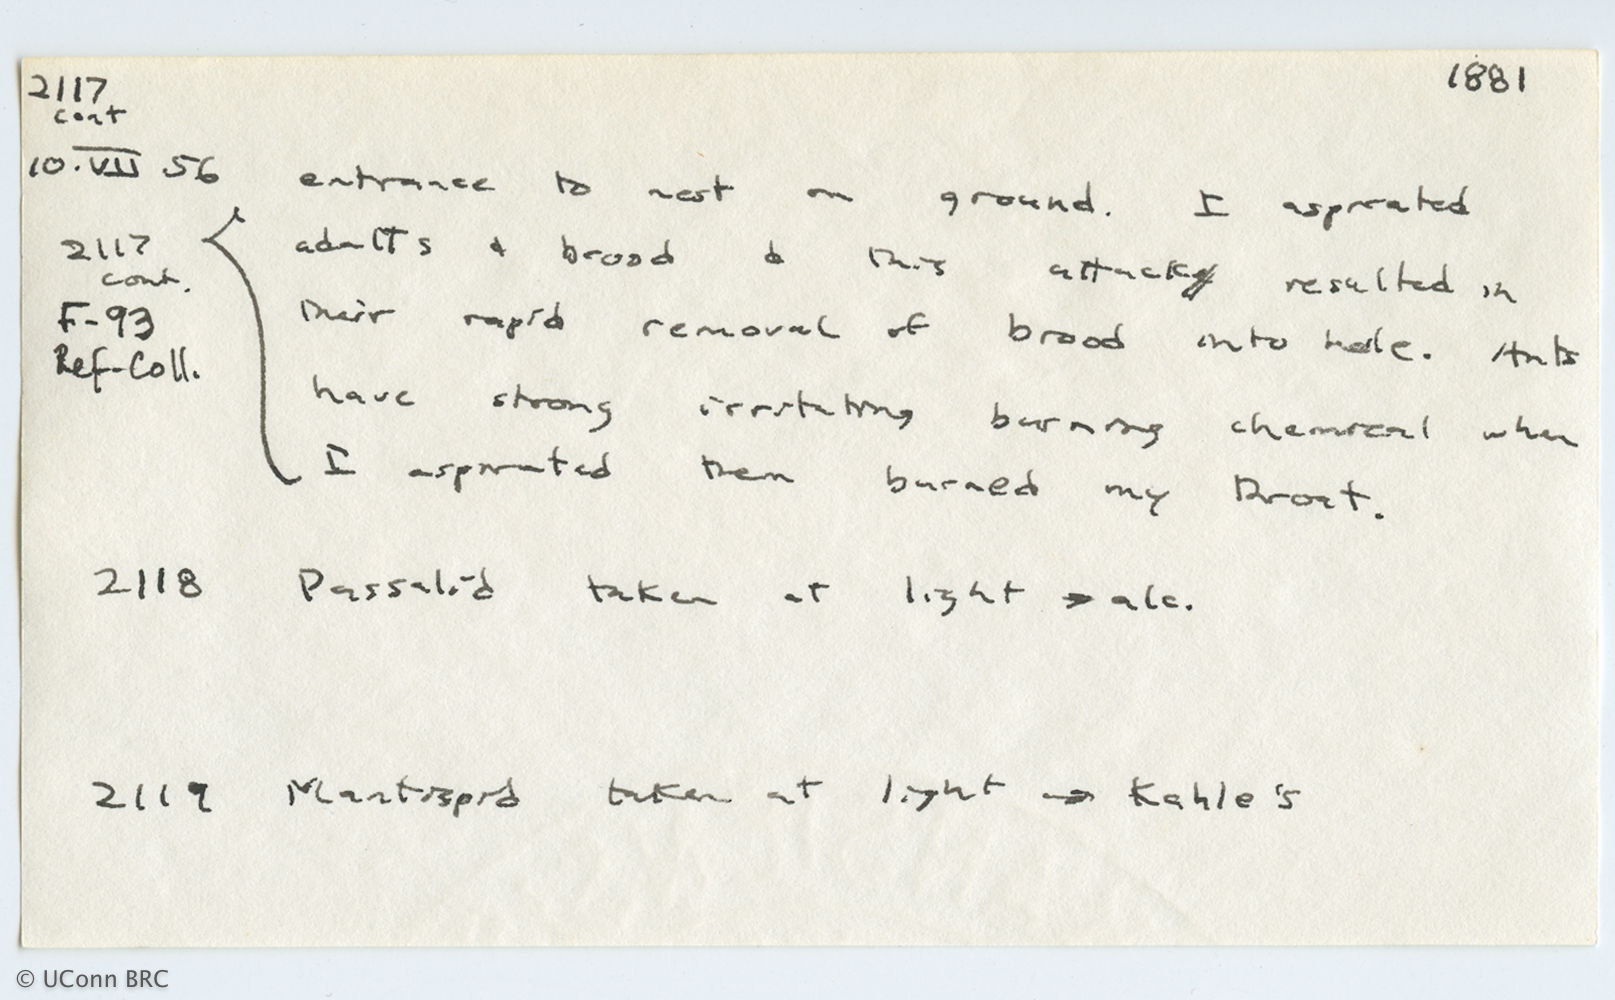 2117 1881
cont
10·VII 56 entrance to nest on ground. I aspirated
2117 adults & brood & this attack resulted in
cont.
F-93 their rapid removal of brood into hole. Ants
Ref-Coll.
have strong irritating burning chemical when
I aspirated them burned my throat.
2118 Passalid taken at light → alc.
2119 Mantispid taken at light → Kahle's
© UConn BRC